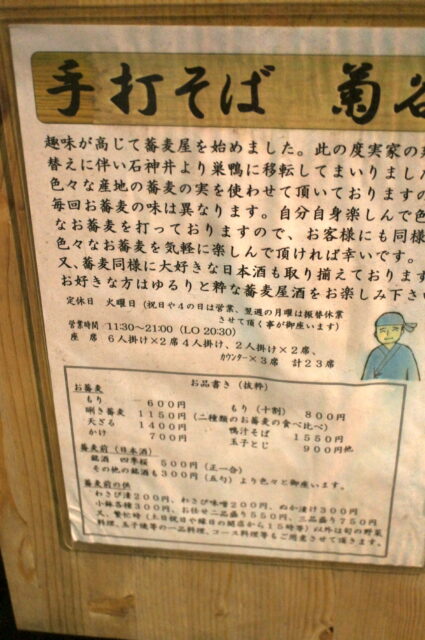 手打そば 菊谷
趣味が高じて蕎麦屋を始めました。此の度実家の
替えに伴い石神井より巣鴨に移転してまいりました
色々な産地の蕎麦の実を使わせて頂いておりますの
毎回お蕎麦の味は異なります。自分自身楽しんで色
なお蕎麦を打っておりますので、お客様にも同様
色々なお蕎麦を気軽に楽しんで頂ければ幸いです。
又、蕎麦同様に大好きな日本酒も取り揃えております
お好きな方はゆるりと粋な蕎麦屋酒をお楽しみ下さい
定休日 火曜日(祝日や4の日は営業、翌週の月曜は振替休業
させて頂く事が御座います)
営業時間 11:30~21:00 (LO 20:30)
座 席 6人掛け×2席 4人掛け、2人掛け×2席、
カウンター×3席 計23席
お品書き(抜粋)
お蕎麦
もり 600円 もり(十割) 800円
利き蕎麦 1150円(二種類のお蕎麦の食べ比べ)
天ざる 1400円 鴨汁そば 1550円
かけ 700円 玉子とじ 900円他
蕎麦前(日本酒)
銘酒 四季桜 500円(正一合)
その他の銘酒も300円(五勺)より色々と御座います。
蕎麦前の供
わさび漬200円、わさび味噌200円、ぬか漬け300円
小鉢各種300円、お任せ二品盛り550円、三品盛り750円
又、繁忙時(土日祝日や縁日の開店から15時等)以外は旬の野菜
料理、玉子焼等の一品料理、コース料理等もご用意させて頂きます。